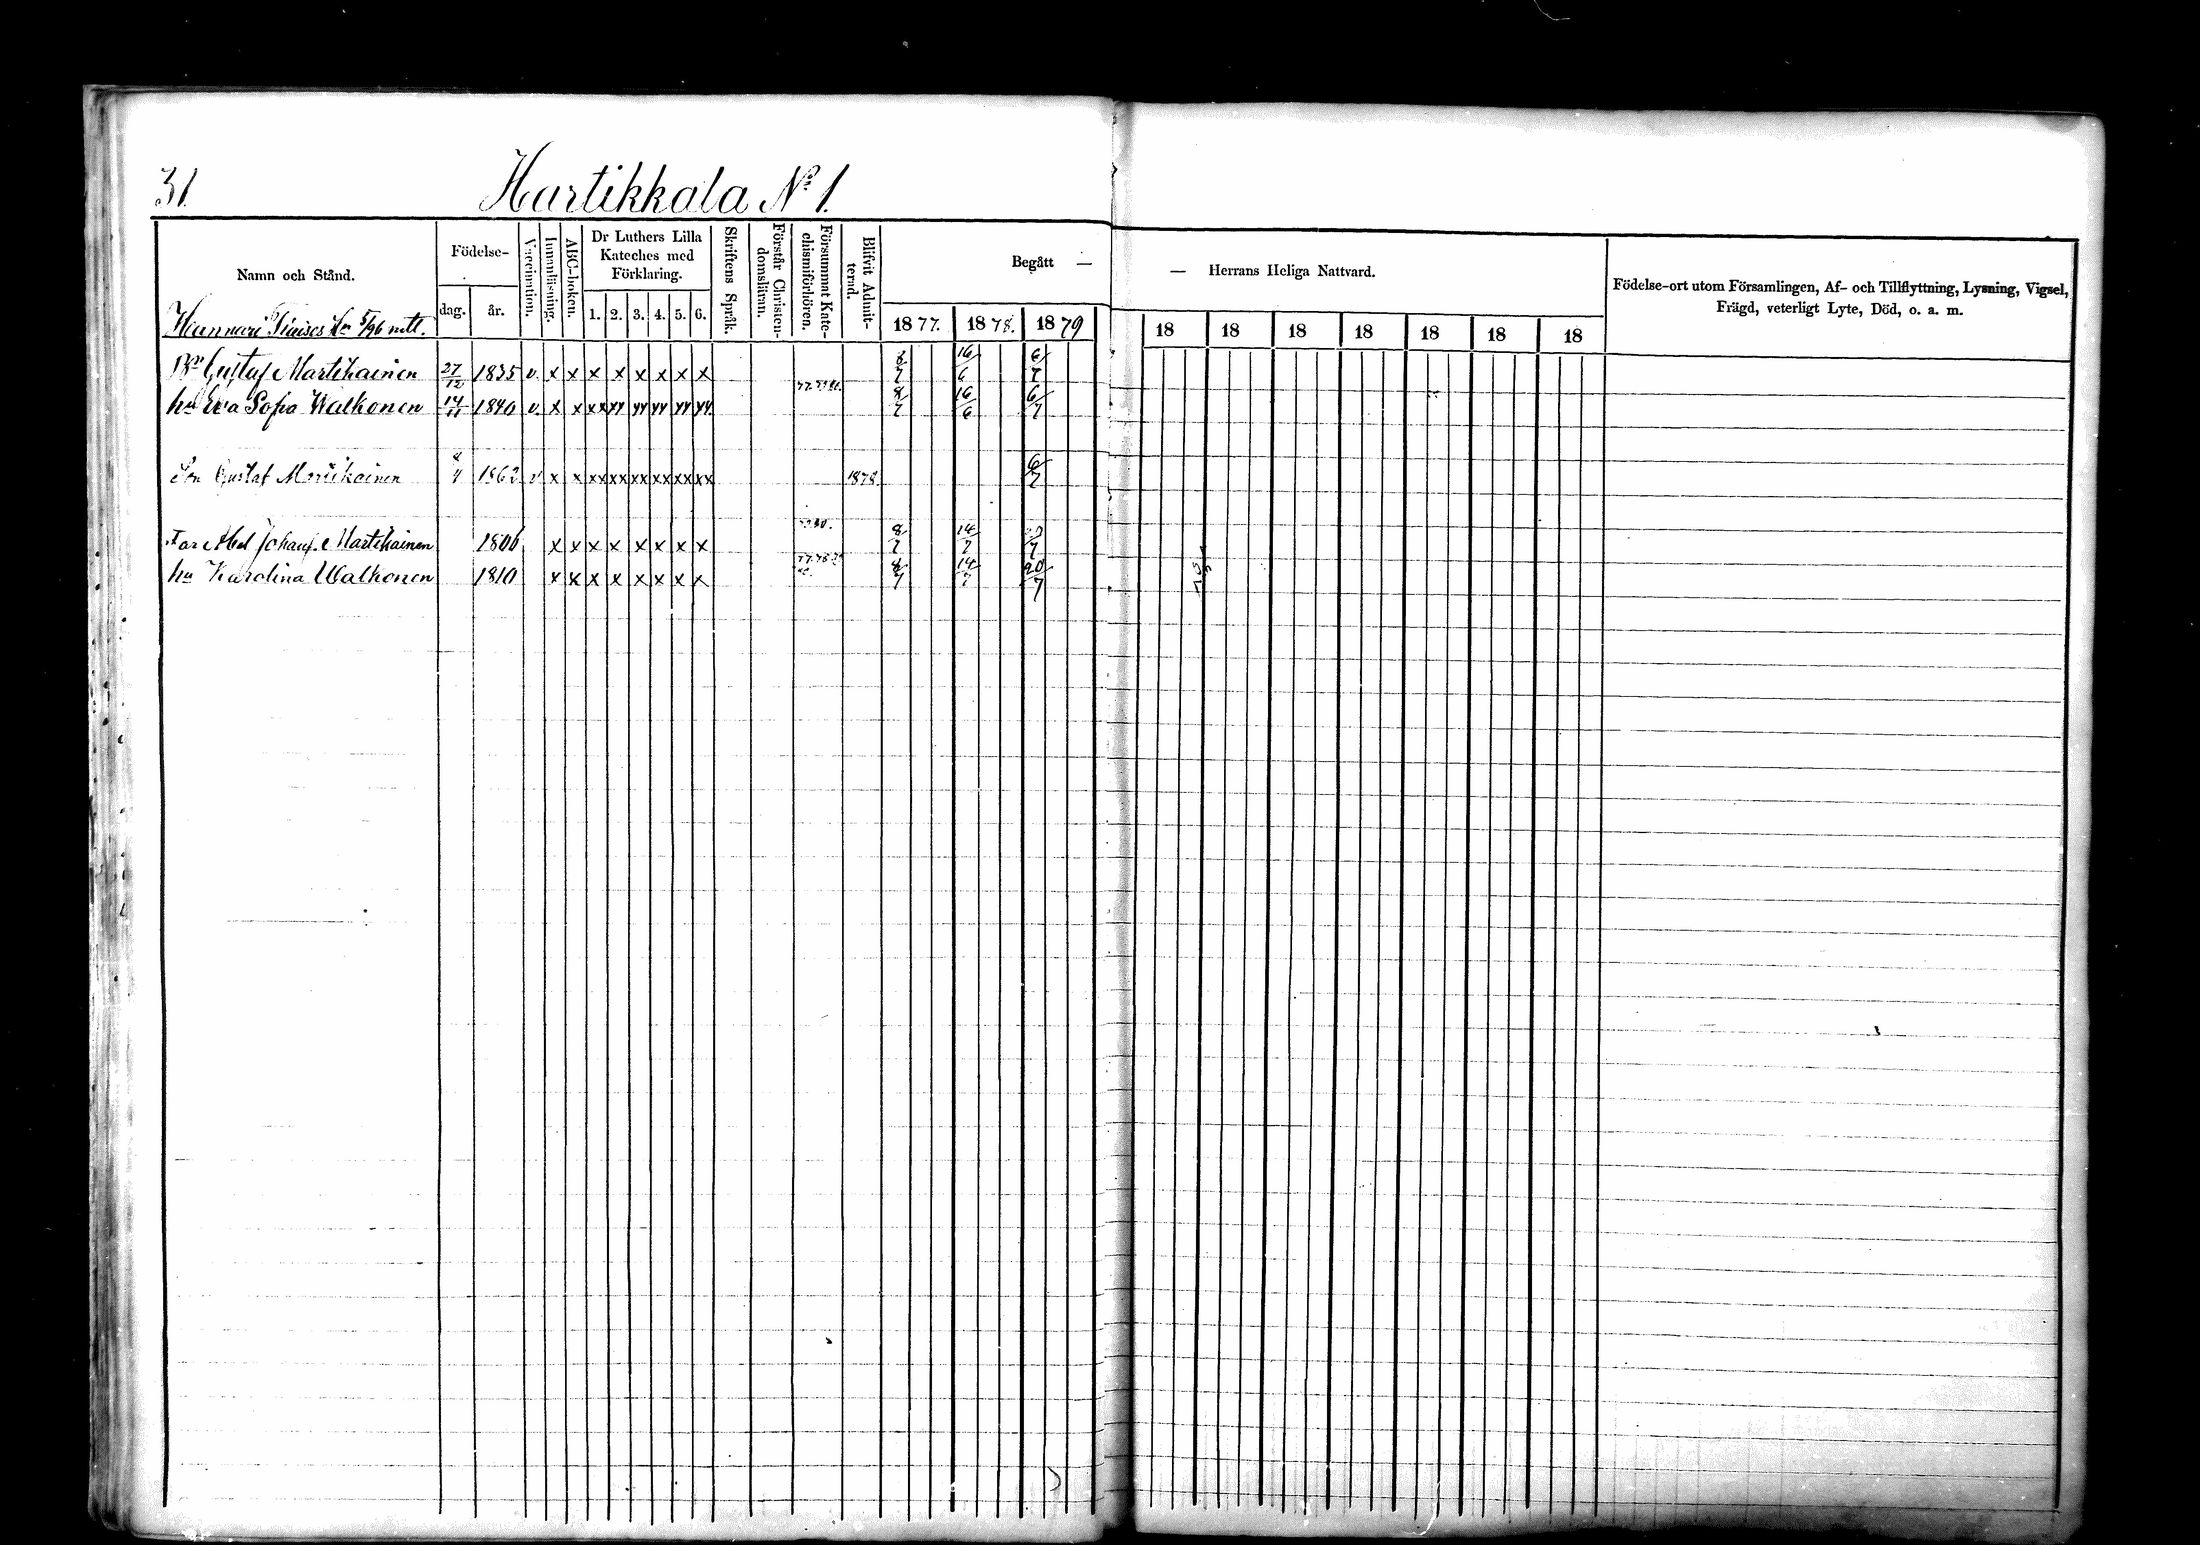 31.
Hartikkala No 1.
Namn och Stånd.
Födelse-
dag.
år.
Vaccination.
Innanläsning.
ABC-boken.
Dr Luthers Lilla
Kateches med
Förklaring.
1. 2. 3. 4. 5. 6.
Skriftens Språk.
Förstår Christen-
domsläran.
Försummat Kate-
chismiförhören.
Blifvit Admit-
terad.
Begått —
— Herrans Heliga Nattvard.
1877. 1878. 1879
18 18 18 18 18 18 18
Födelse-ort utom Församlingen, Af- och Tillflyttning, Lysning, Vigsel,
Frägd, veterligt Lyte, Död, o. a. m.
5/96 mtl.
Bn Gustaf Martikainen 27/12 1835 v. x x x x x x x x 8/7 16/6 6/7
hu Eva Sofia Walkonen 14/11 1840 v. x x xx xx xx xx xx xx 8/7 16/6 6/7
Son Gustaf Martikainen 1862 v x x xx xx xx xx xx xx 1878 6/7
Far Abel Johan s. Martikainen 1806 x x x x x x x x 8/7 14/7
hu Karolina Walkonen 1810 x x x x x x x x 8/7 14/7 20/7